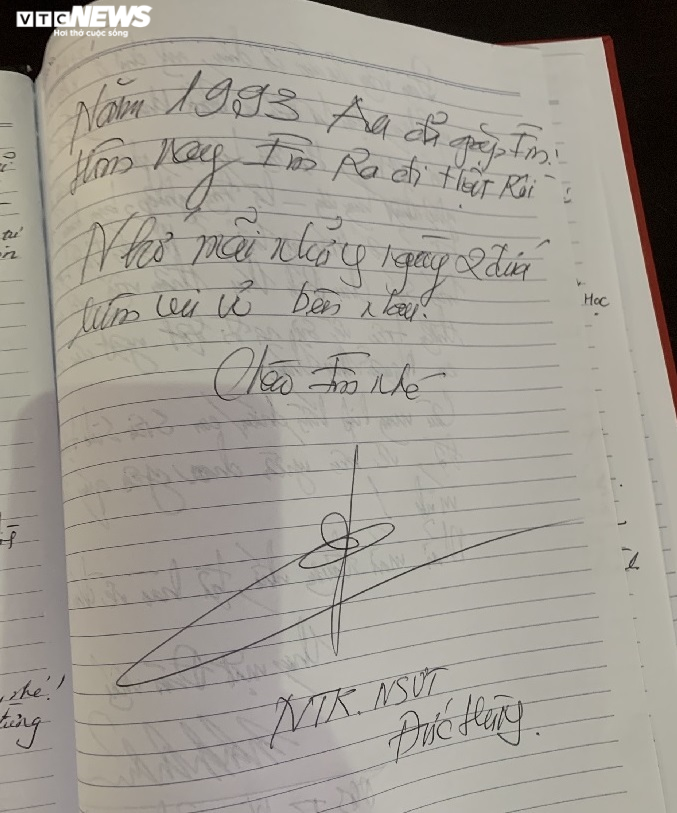 VTC NEWS
Hơi thở cuộc sống
Năm 1993 Aa đã gặp Em!
Hôm nay Em Ra đi thật Rồi
Nhớ mãi những ngày 2 đứa
vi vu bên nhau.
Chào Em nhé
NTK. NSƯT
Đức Hùng.
Học
nhé!